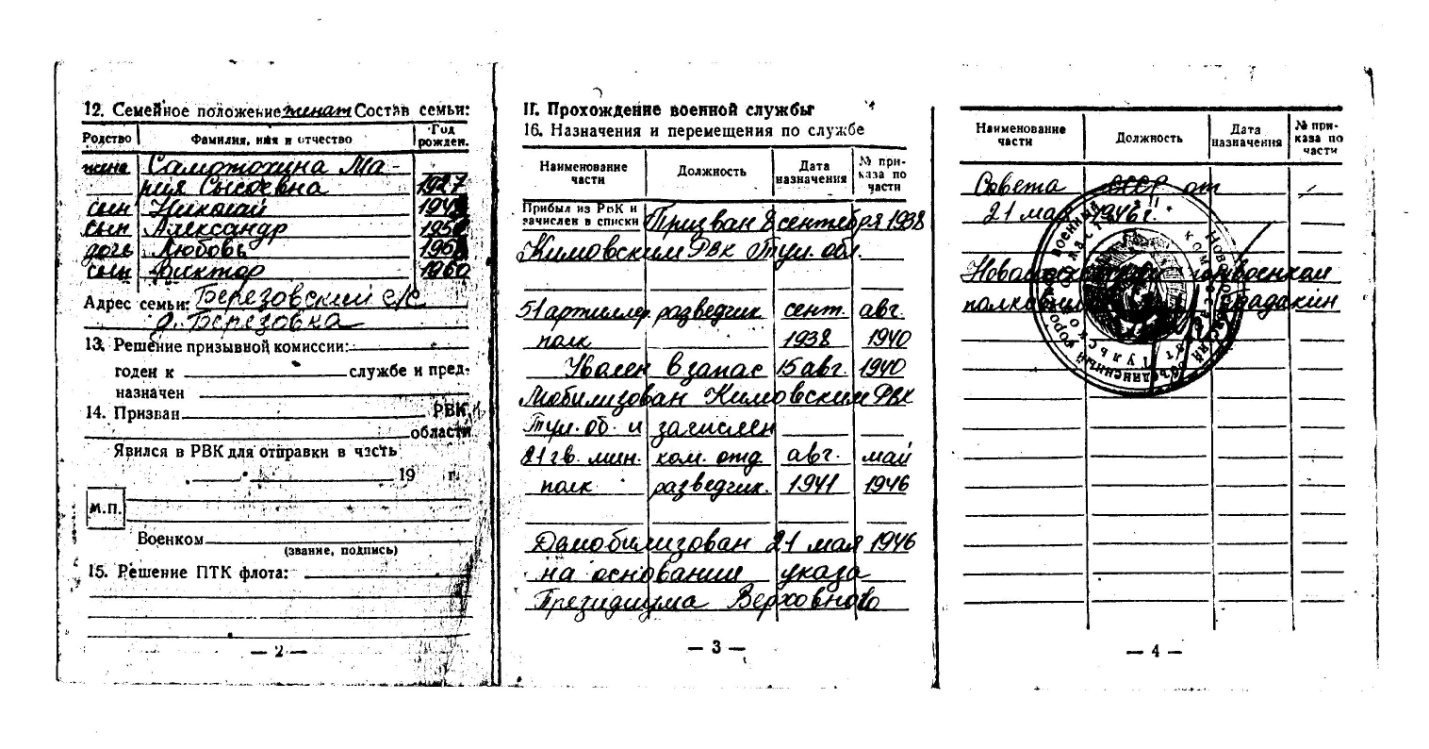 12. Семейное положение женат Состав семьи:
Родство Фамилия, имя и отчество Год рожден.
жена Самотохина Ма-
рия Сысоевна 1927
сын Николай
сын Александр
дочь Любовь
сын Виктор 1960
Адрес семьи: Березовский с/с
д. Березовка
13. Решение призывной комиссии:
годен к службе и пред-
назначен
14. Призван РВК,
области
Явился в РВК для отправки в часть
19 г.
М.П.
Военком
(звание, подпись)
15. Решение ПТК флота:
— 2 —
II. Прохождение военной службы
16. Назначения и перемещения по службе
Наименование части Должность Дата назначения № при-каза по части
Прибыл из РвК и зачислен в списки Призван 8 сентября 1938
Кимовским РВК Тул. обл.
51 артиллер. разведчик сент. авг.
полк 1938 1940
Уволен в запас 15 авг. 1940
Мобилизован Кимовским РВК
Тул. об. и зачислен
21 гв. мин. ком. отд авг. май
полк разведчик. 1941 1946
Демобилизован 21 мая 1946
на основании указа
Президиума Верховного
— 3 —
Наименование части Должность Дата назначения № при-каза по части
Совета СССР от
21 мая 1946 г.
горвоенком
— 4 —